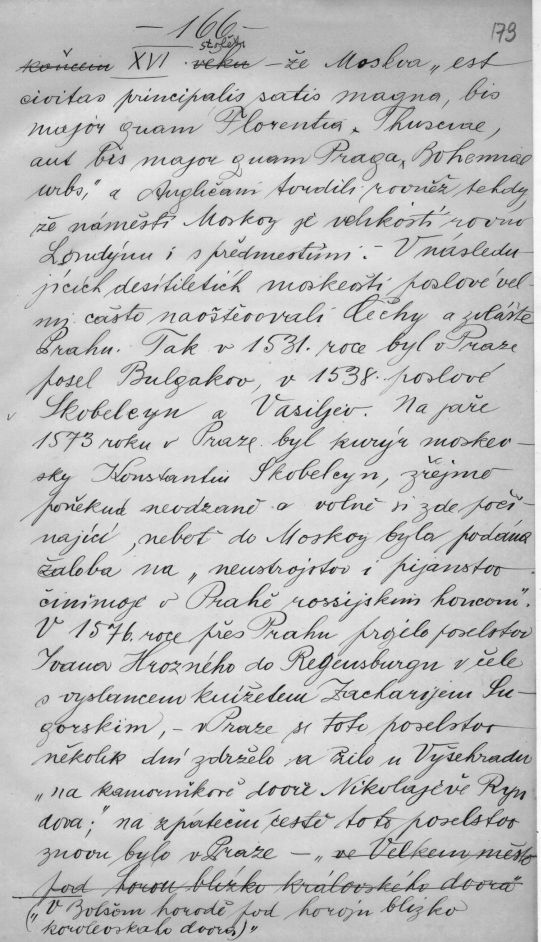 — 166 —
179
století
koncem XVI. věku – že Moskva „est
civitas principalis satis magna, bis
major quam Florentia, Thusciae,
aut bis major quam Praga, Bohemiae
urbs," a Angličani tvrdili rovněž tehdy,
že náměstí Moskvy je velikostí rovno
Londýnu i s předmestími. – V následu-
jících desítiletích moskevští poslové vel-
mi často navštěvovali Čechy a zvláště
Prahu. Tak v 1531. roce byl v Praze
posel Bulgakov, v 1538. poslové
Skobelcyn a Vasiljev. Na jaře
1573 roku v Praze byl kurýr moskev-
sky Konstantin Skobelcyn, zřejmo
poněkud nevdzaně a volně si zde počí-
nající, neboť do Moskvy byla podána
žaloba na „neustrojstvo i pijanstvo
činimoje v Prahě rossijskim honcom".
V 1576. roce přes Prahu projelo poselstvo
Ivana Hrozného do Regensburgu v čele
s vyslancem knížetem Zacharijem Su-
gorskim, – v Praze se toto poselstvo
několik dní zdrželo a žilo u Vyšehradu
„na kamornikově dvorě Nikolajevě Ryn
dova;" na zpáteční cestě toto poselstvo
znovu bylo v Praze – „ve Velkem městě
pod horou blízko královského dvora"
(„V Bolšom horodě pod horoju blizko
korolevskaho dvora)"